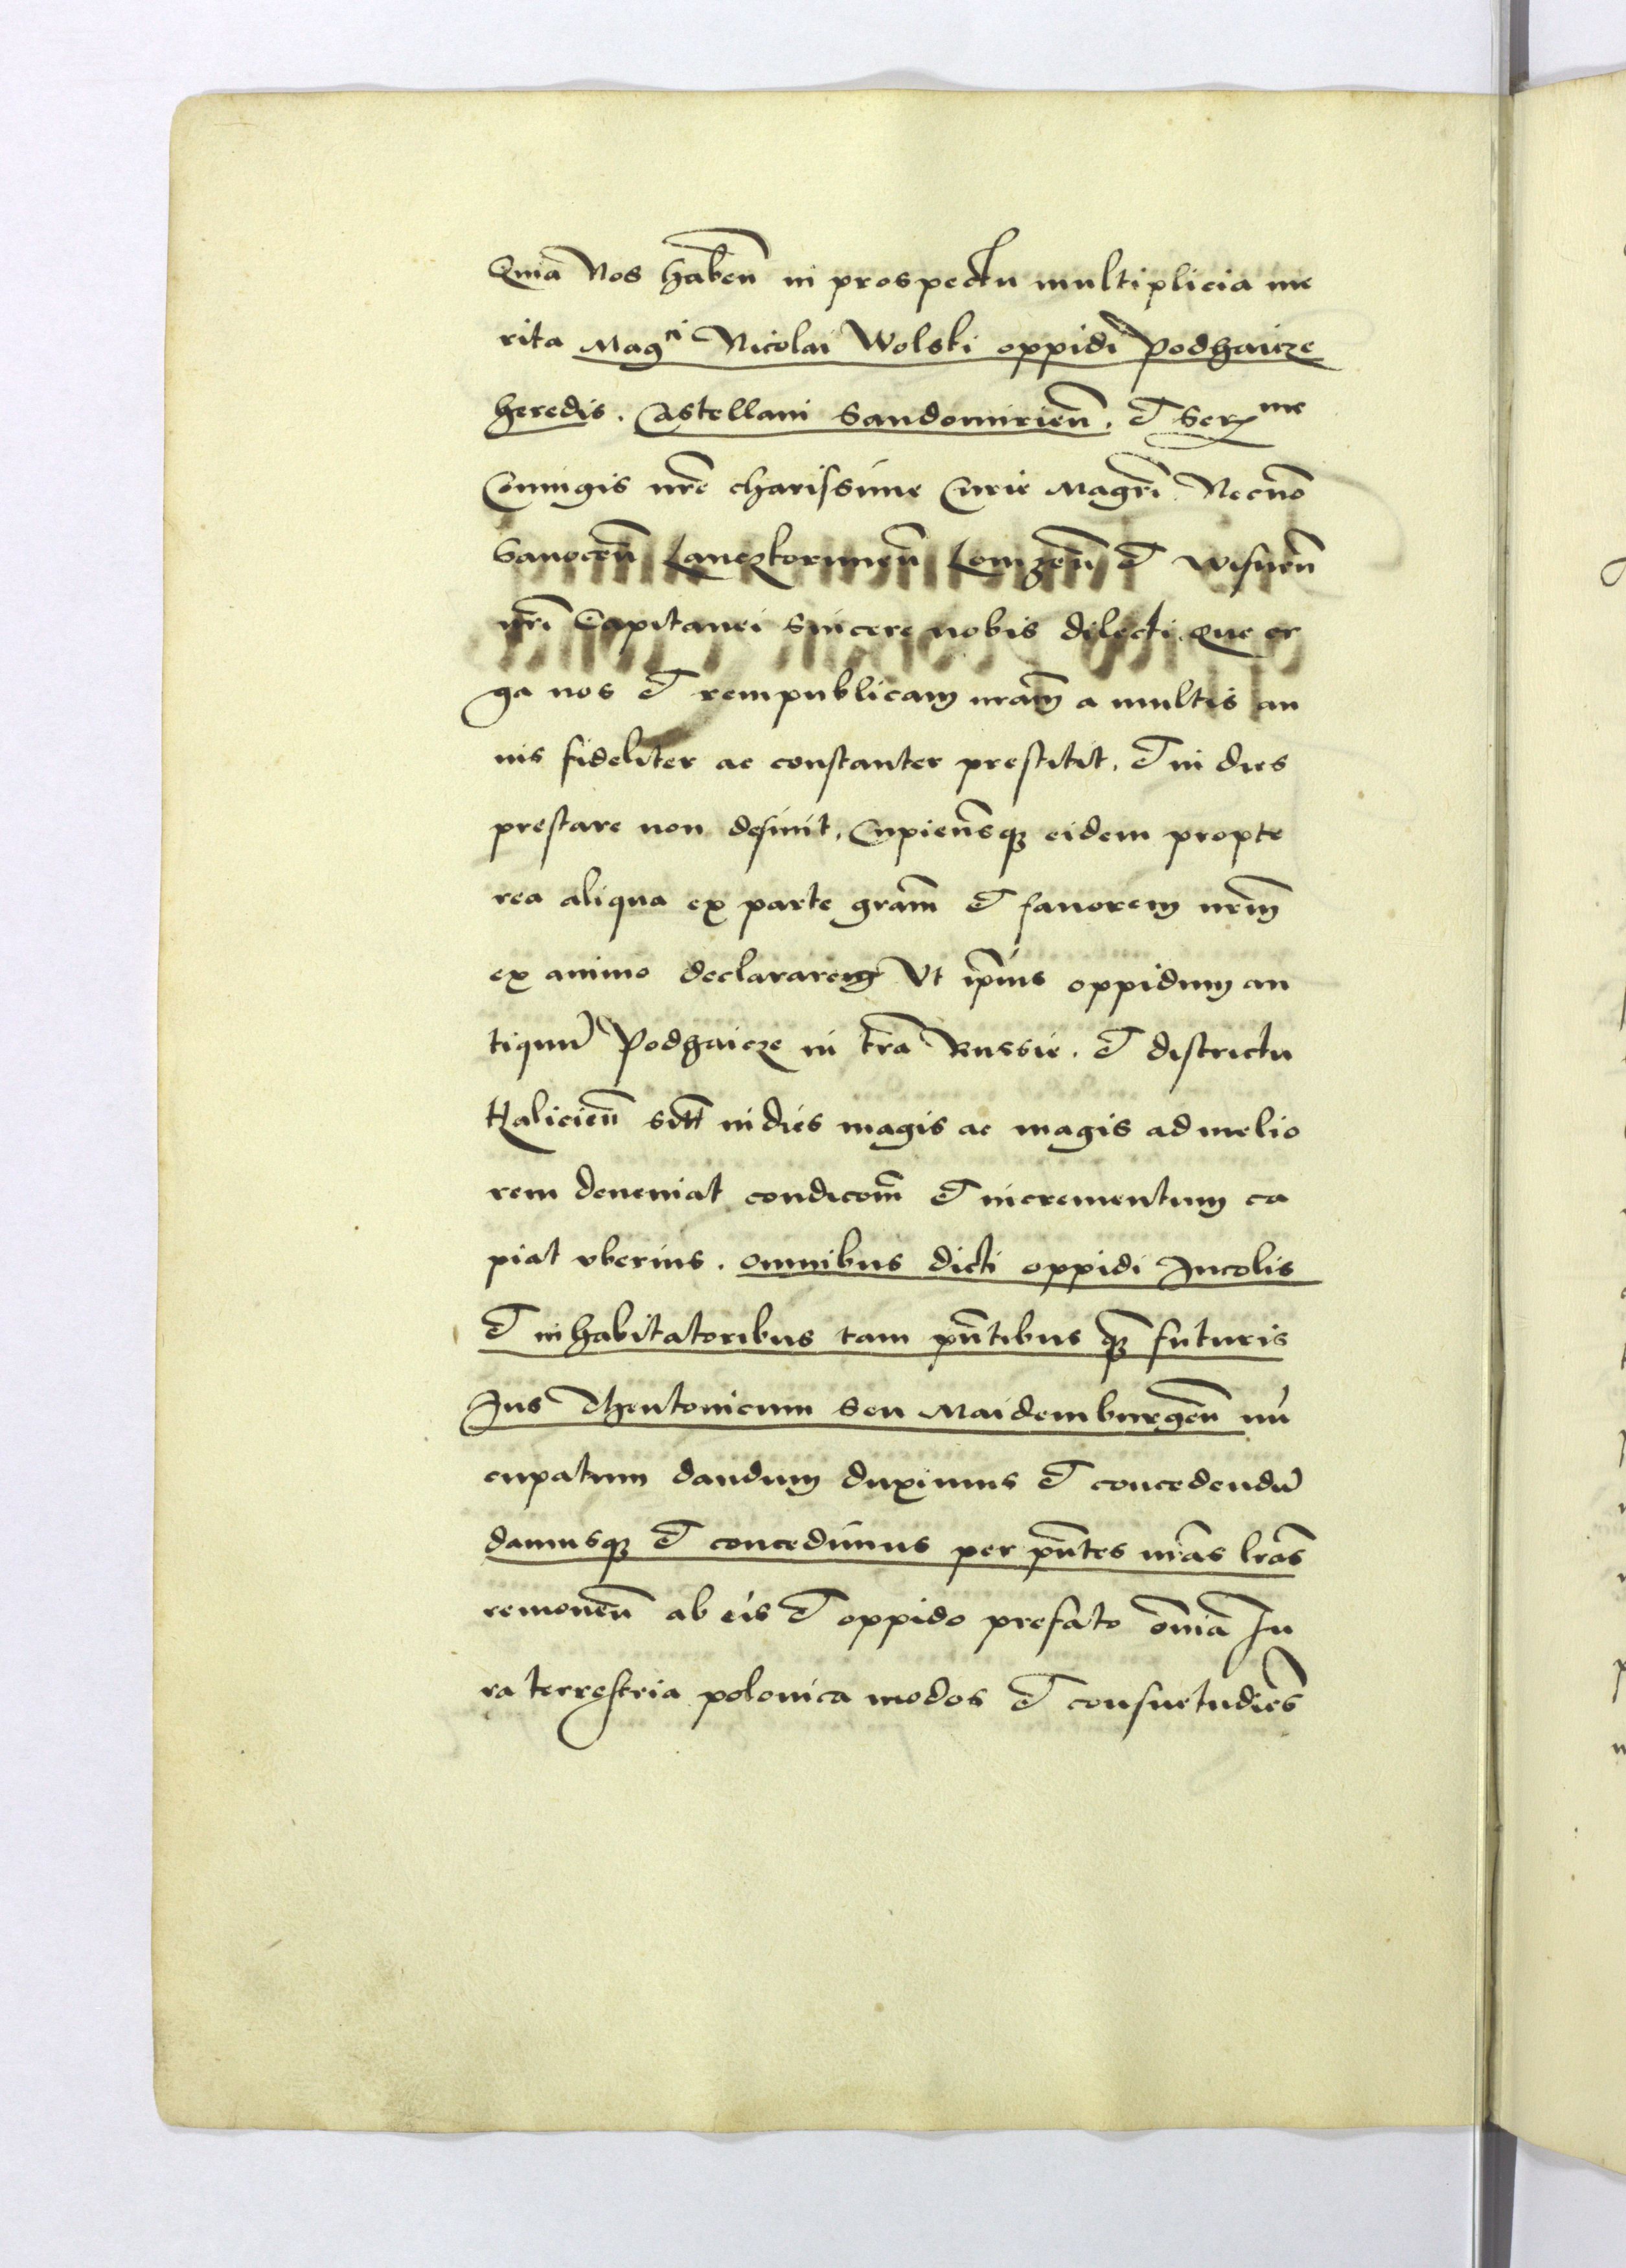 Quia Nos habeñ in prospectu multiplicia me
rita Mag^ci Nicolai Wolski oppidi Podhaicze
heredis. Castellani Sandomirieñ. et Ser^me
Coniugis nr̃e charissime Curie Magr̃i Necnõ
Sanoceñ Lanczkorunieñ Lomzeñ et Wisneñ
nr̃i Capitanei sincere nobis dilecti que er
ga nos et rempublicam nr̃am a multis an
nis fideliter ac constanter prestitit. et in dies
prestare non desinit. Cupieñsqꝫ eidem propte
rea aliqua ex parte gr̃am et fauorem nr̃m
ex animo declararem Vt ip̃ius oppidum an
tiquũ Podhaicze in tr̃a Russie. et districtu
Halicieñ sitt̃ in dies magis ac magis ad melio
rem deueniat condicom̃ et incrementum ca
piat vberius. omnibus dicti oppidi Incolis
et inhabitatoribus tam pñtibus qꝫ̃ futuris
Jus Theutonicum seu Maidemburgeñ nũ
cupatum dandum duximus et concedendũ
damusqꝫ et concedimus per pñtes nr̃as lr̃as
remoueñ ab eis et oppido prefato om̃ia Ju
ra terrestria polonica modos et consuetudiẽs